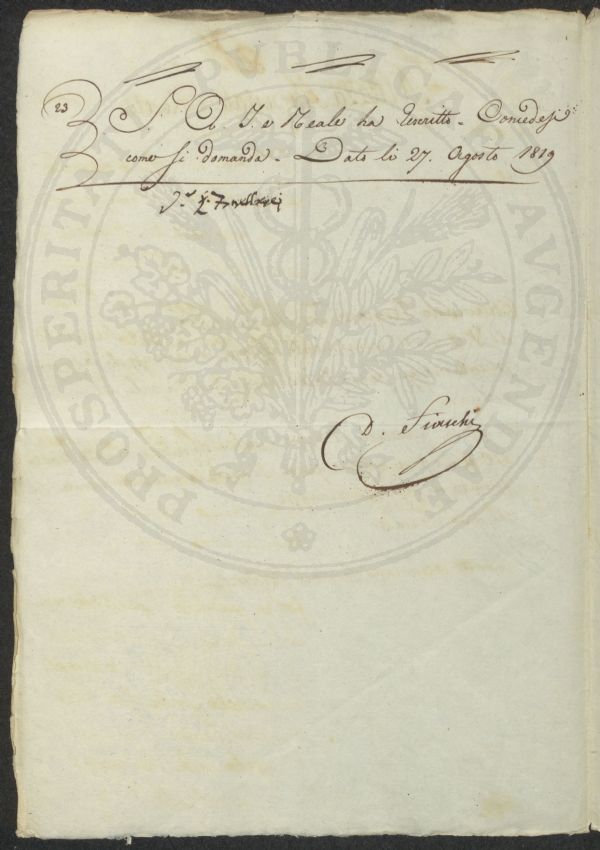 23
S. A. I. e Reale ha Rescritto - Concedesi
come si domanda - Dato li 27. Agosto 1819
D. Fiaschi
PROSPERITATI PUBLICAE AVGENDAE